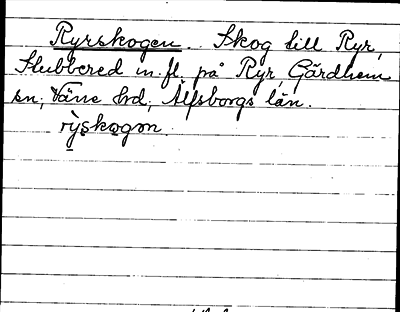 Ryrskogen. Skog till Ryr,
Stubbered m. fl. på Ryr, Gärdhem
sn, Väne hd, Älfsborgs län.
rỳskogən.